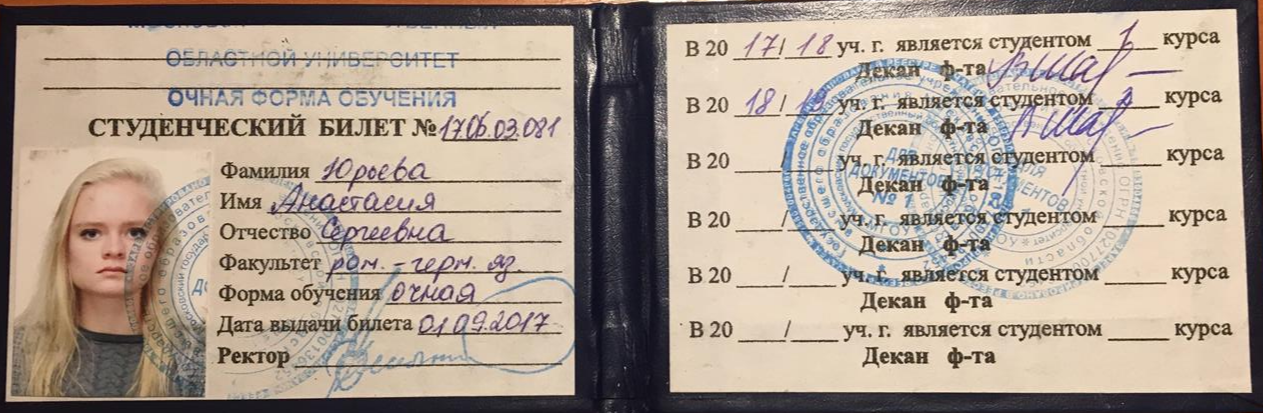 ОБЛАСТНОЙ УНИВЕРСИТЕТ
ОЧНАЯ ФОРМА ОБУЧЕНИЯ
СТУДЕНЧЕСКИЙ БИЛЕТ № 1706.03.081
Фамилия Юрьева
Имя Анастасия
Отчество Сергеевна
Факультет ром.-герм. яз.
Форма обучения очная
Дата выдачи билета 01.09.2017
Ректор
В 20 17/18 уч. г. является студентом 1 курса
Декан ф-та
В 20 18/19 уч. г. является студентом 2 курса
Декан ф-та
В 20 ___/___ уч. г. является студентом ___ курса
Декан ф-та
В 20 ___/___ уч. г. является студентом ___ курса
Декан ф-та
В 20 ___/___ уч. г. является студентом ___ курса
Декан ф-та
В 20 ___/___ уч. г. является студентом ___ курса
Декан ф-та
ДЛЯ
ДОКУМЕНТОВ
№ 1